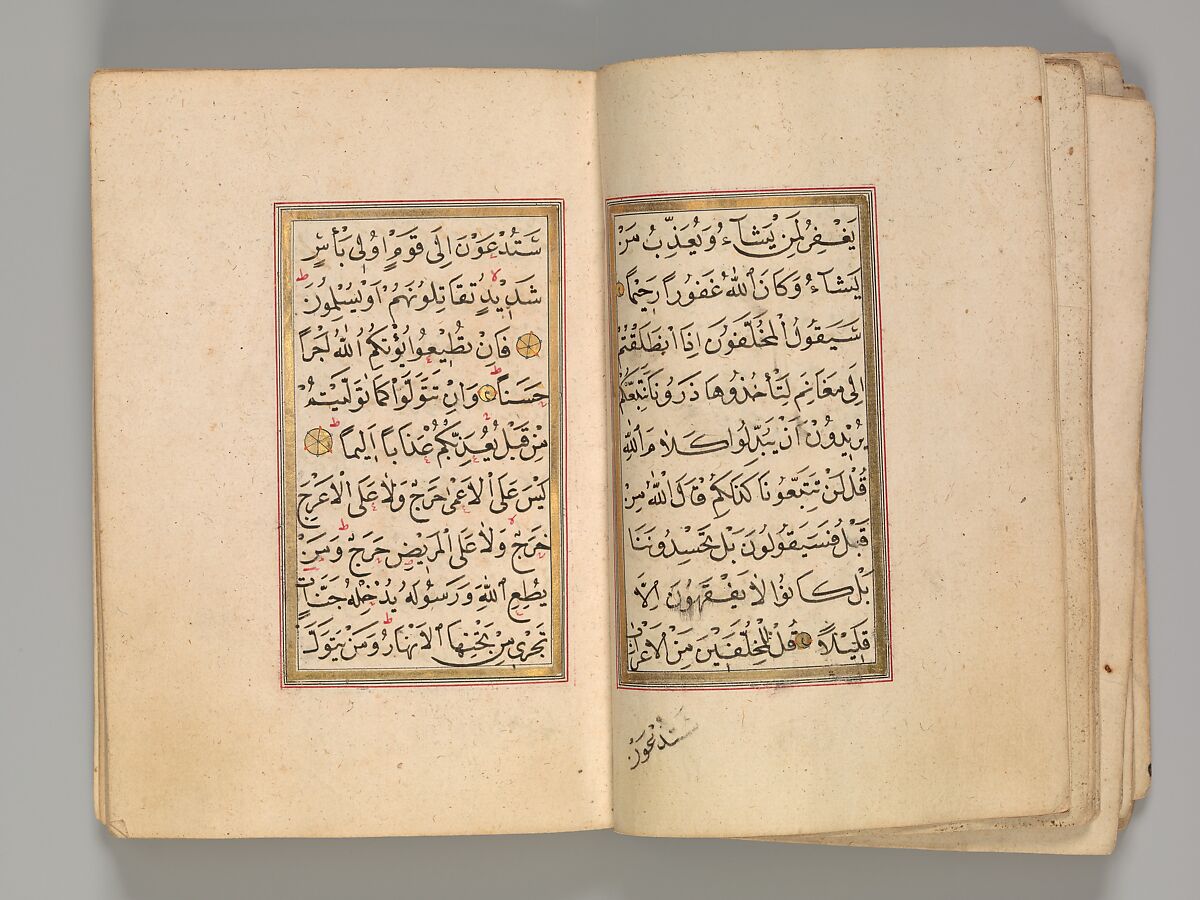 يَغْفِرُ لِمَن يَشَآءُ وَيُعَذِّبُ مَنْ
يَشَآءُ وَكَانَ ٱللّٰهُ غَفُورًا رَحِيمًا
سَيَقُولُ ٱلْمُخَلَّفُونَ اِذَا ٱنْطَلَقْتُمْ
اِلَى مَغَانِمَ لِتَأْخُذُوهَا ذَرُونَا نَتَّبِعْكُمْ
يُرِيدُونَ اَنْ يُبَدِّلُوا كَلَامَ ٱللّٰهِ
قُلْ لَنْ تَتَّبِعُونَا كَذٰلِكُمْ قَالَ ٱللّٰهُ مِنْ
قَبْلُ فَسَيَقُولُونَ بَلْ تَحْسُدُونَنَا
بَلْ كَانُوا لَا يَفْقَهُونَ اِلَّا
قَلِيلًا قُلْ لِلْمُخَلَّفِينَ مِنَ ٱلْاَعْرَابِ
سَتُدْعَوْنَ
سَتُدْعَوْنَ اِلَى قَوْمٍ اُولِى بَأْسٍ
شَدِيدٍ تُقَاتِلُونَهُمْ اَوْ يُسْلِمُونَ
فَاِنْ تُطِيعُوا يُؤْتِكُمُ ٱللّٰهُ اَجْرًا
حَسَنًا وَاِنْ تَتَوَلَّوْا كَمَا تَوَلَّيْتُمْ
مِنْ قَبْلُ يُعَذِّبْكُمْ عَذَابًا اَلِيمًا
لَيْسَ عَلَى ٱلْاَعْمٰى حَرَجٌ وَلَا عَلَى ٱلْاَعْرَجِ
حَرَجٌ وَلَا عَلَى ٱلْمَرِيضِ حَرَجٌ وَمَنْ
يُطِعِ ٱللّٰهَ وَرَسُولَهُ يُدْخِلْهُ جَنَّاتٍ
تَجْرِى مِنْ تَحْتِهَا ٱلْاَنْهَارُ وَمَنْ يَتَوَلَّ